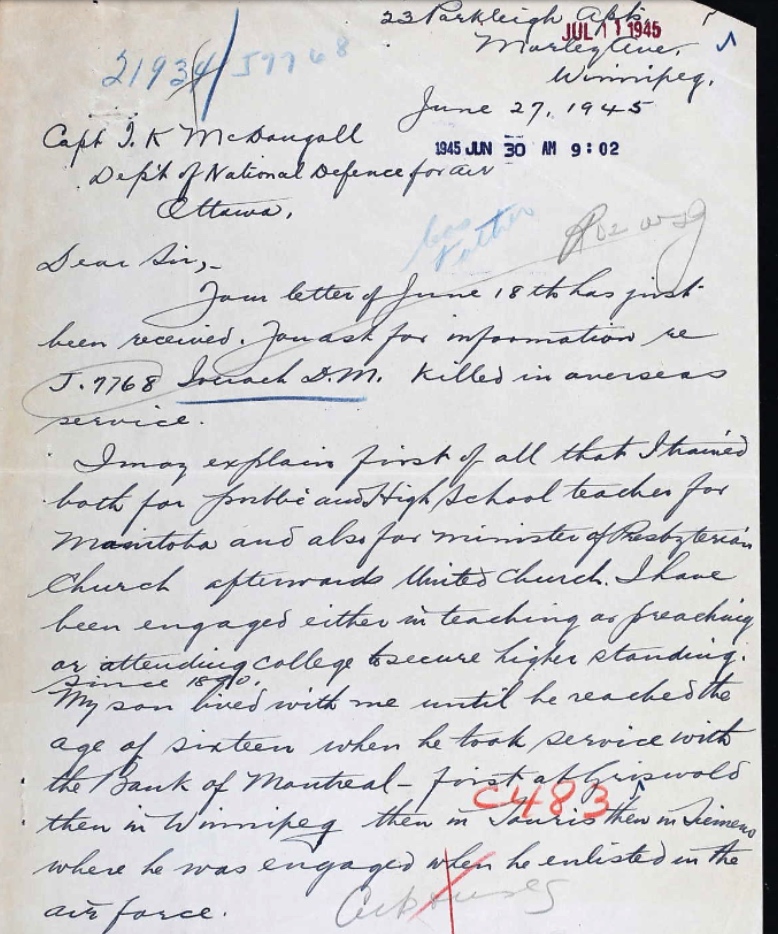 23 Parkleigh Apts.
JUL 11 1945
Morley Ave,
Winnipeg,
21934 / 59768
June 27, 1945
Capt J. K McDougall
1945 JUN 30 AM 9:02
Dep't of National Defence for air
Ottawa,
Father
Dear Sir,-
Your letter of June 18th has just
been received. You ask for information re
J. 7768 D.M. Killed in overseas
service.
I may explain first of all that I trained
both for public and High School teacher for
Manitoba and also for minister of Presbyterian
Church afterwards United Church. I have
been engaged either in teaching or preaching
or attending college to secure higher standing.
since 1890.
My son lived with me until he reached the
age of sixteen when he took service with
the Bank of Montreal - first at Griswold
C483
then in Winnipeg then in Souris then in
where he was engaged when he enlisted in the
air force.